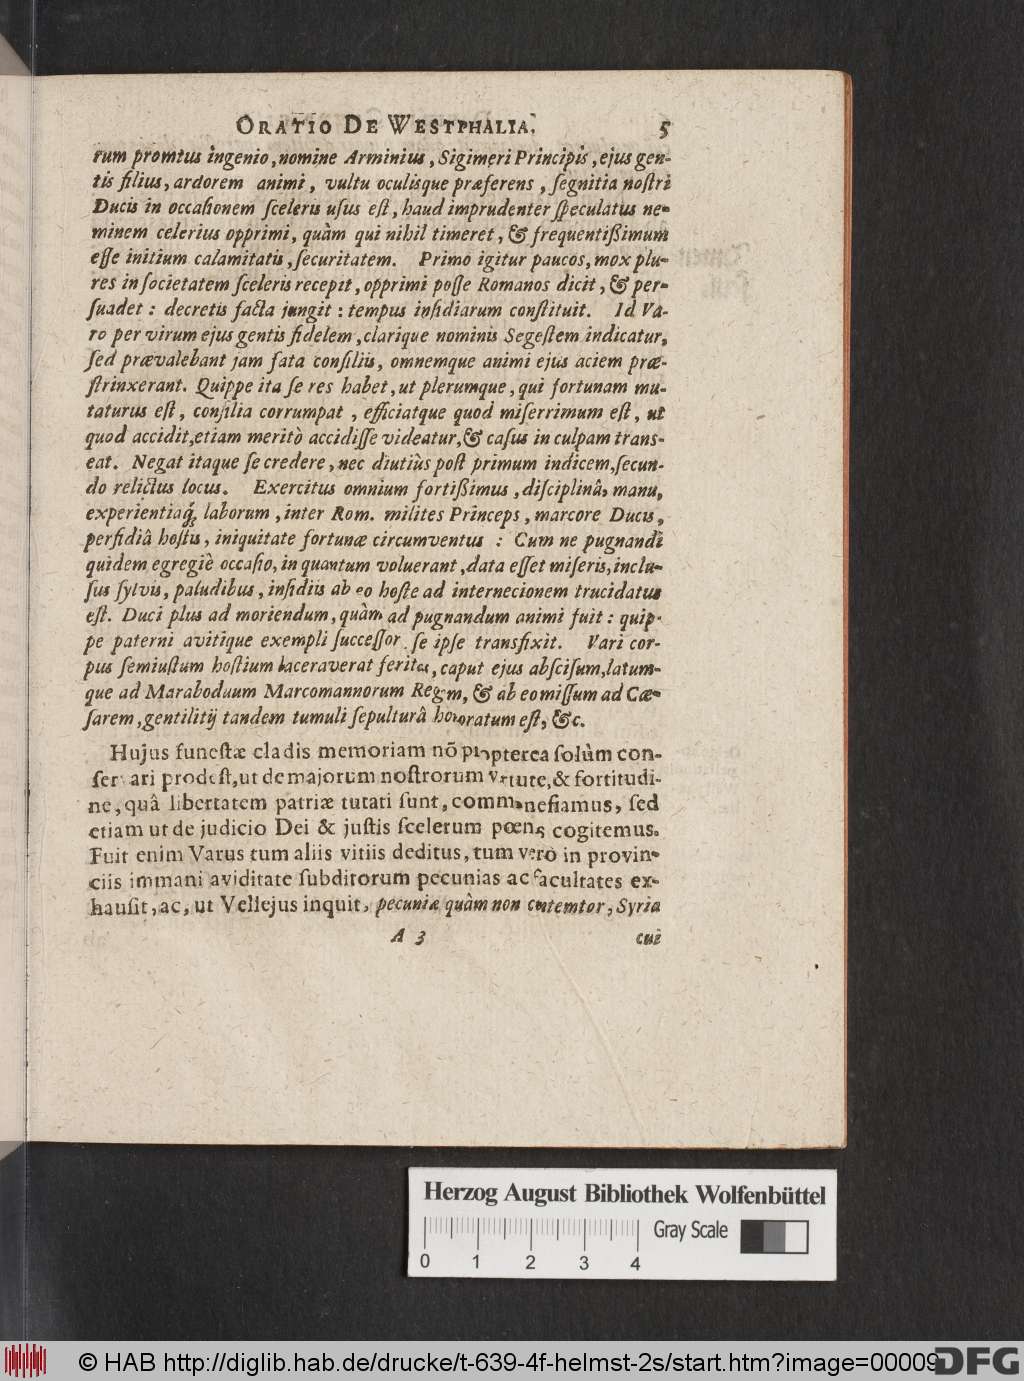 ORATIO DE WESTPHALIA. 5
rum promtus ingenio, nomine Arminius, Sigimeri Principis, ejus gen-
tis filius, ardorem animi, vultu oculisque præferens, ſegnitia noſtri
Ducis in occaſionem ſceleris uſus eſt, haud imprudenter ſpeculatus ne-
minem celerius opprimi, quàm qui nihil timeret, & frequentißimum
eſſe initium calamitatis, ſecuritatem. Primo igitur paucos, mox plu-
res in ſocietatem ſceleris recepit, opprimi poſſe Romanos dicit, & per-
ſuadet: decretis facta jungit: tempus inſidiarum conſtituit. Id Va-
ro per virum ejus gentis fidelem, clarique nominis Segeſtem indicatur,
ſed prævalebant jam fata conſiliis, omnemque animi ejus aciem præ-
ſtrinxerant. Quippe ita ſe res habet, ut plerumque, qui fortunam mu-
taturus eſt, conſilia corrumpat, efficiatque quod miſerrimum eſt, ut
quod accidit, etiam meritò accidiſſe videatur, & caſus in culpam trans-
eat. Negat itaque ſe credere, nec diutiùs poſt primum indicem, ſecun-
do relictus locus. Exercitus omnium fortißimus, diſciplinâ, manu,
experientiaq́; laborum, inter Rom. milites Princeps, marcore Ducis,
perfidiâ hoſtis, iniquitate fortunæ circumventus : Cum ne pugnandi
quidem egregiè occaſio, in quantum voluerant, data eſſet miſeris, inclu-
ſus ſylvis, paludibus, inſidiis ab eo hoſte ad internecionem trucidatus
eſt. Duci plus ad moriendum, quàm ad pugnandum animi fuit: quip-
pe paterni avitique exempli ſucceſſor ſe ipſe transfixit. Vari cor-
pus ſemiuſtum hoſtium laceraverat feritas, caput ejus abſciſum, latum-
que ad Maraboduum Marcomannorum Regem, & ab eo miſſum ad Cæ-
ſarem, gentilitij tandem tumuli ſepulturâ honoratum eſt, &c.
Hujus funeſtæ cladis memoriam nõ propterea ſolùm con-
ſervari prodeſt, ut de majorum noſtrorum virtute, & fortitudi-
ne, quâ libertatem patriæ tutati ſunt, commonefiamus, ſed
etiam ut de judicio Dei & juſtis ſcelerum pœnis cogitemus.
Fuit enim Varus tum aliis vitiis deditus, tum verò in provin-
ciis immani aviditate ſubditorum pecunias ac facultates ex-
hauſit, ac, ut Vellejus inquit, pecuniæ quàm non contemtor, Syria
A 3 cui
Herzog August Bibliothek Wolfenbüttel
Gray Scale
0 1 2 3 4
© HAB http://diglib.hab.de/drucke/t-639-4f-helmst-2s/start.htm?image=00009
DFG